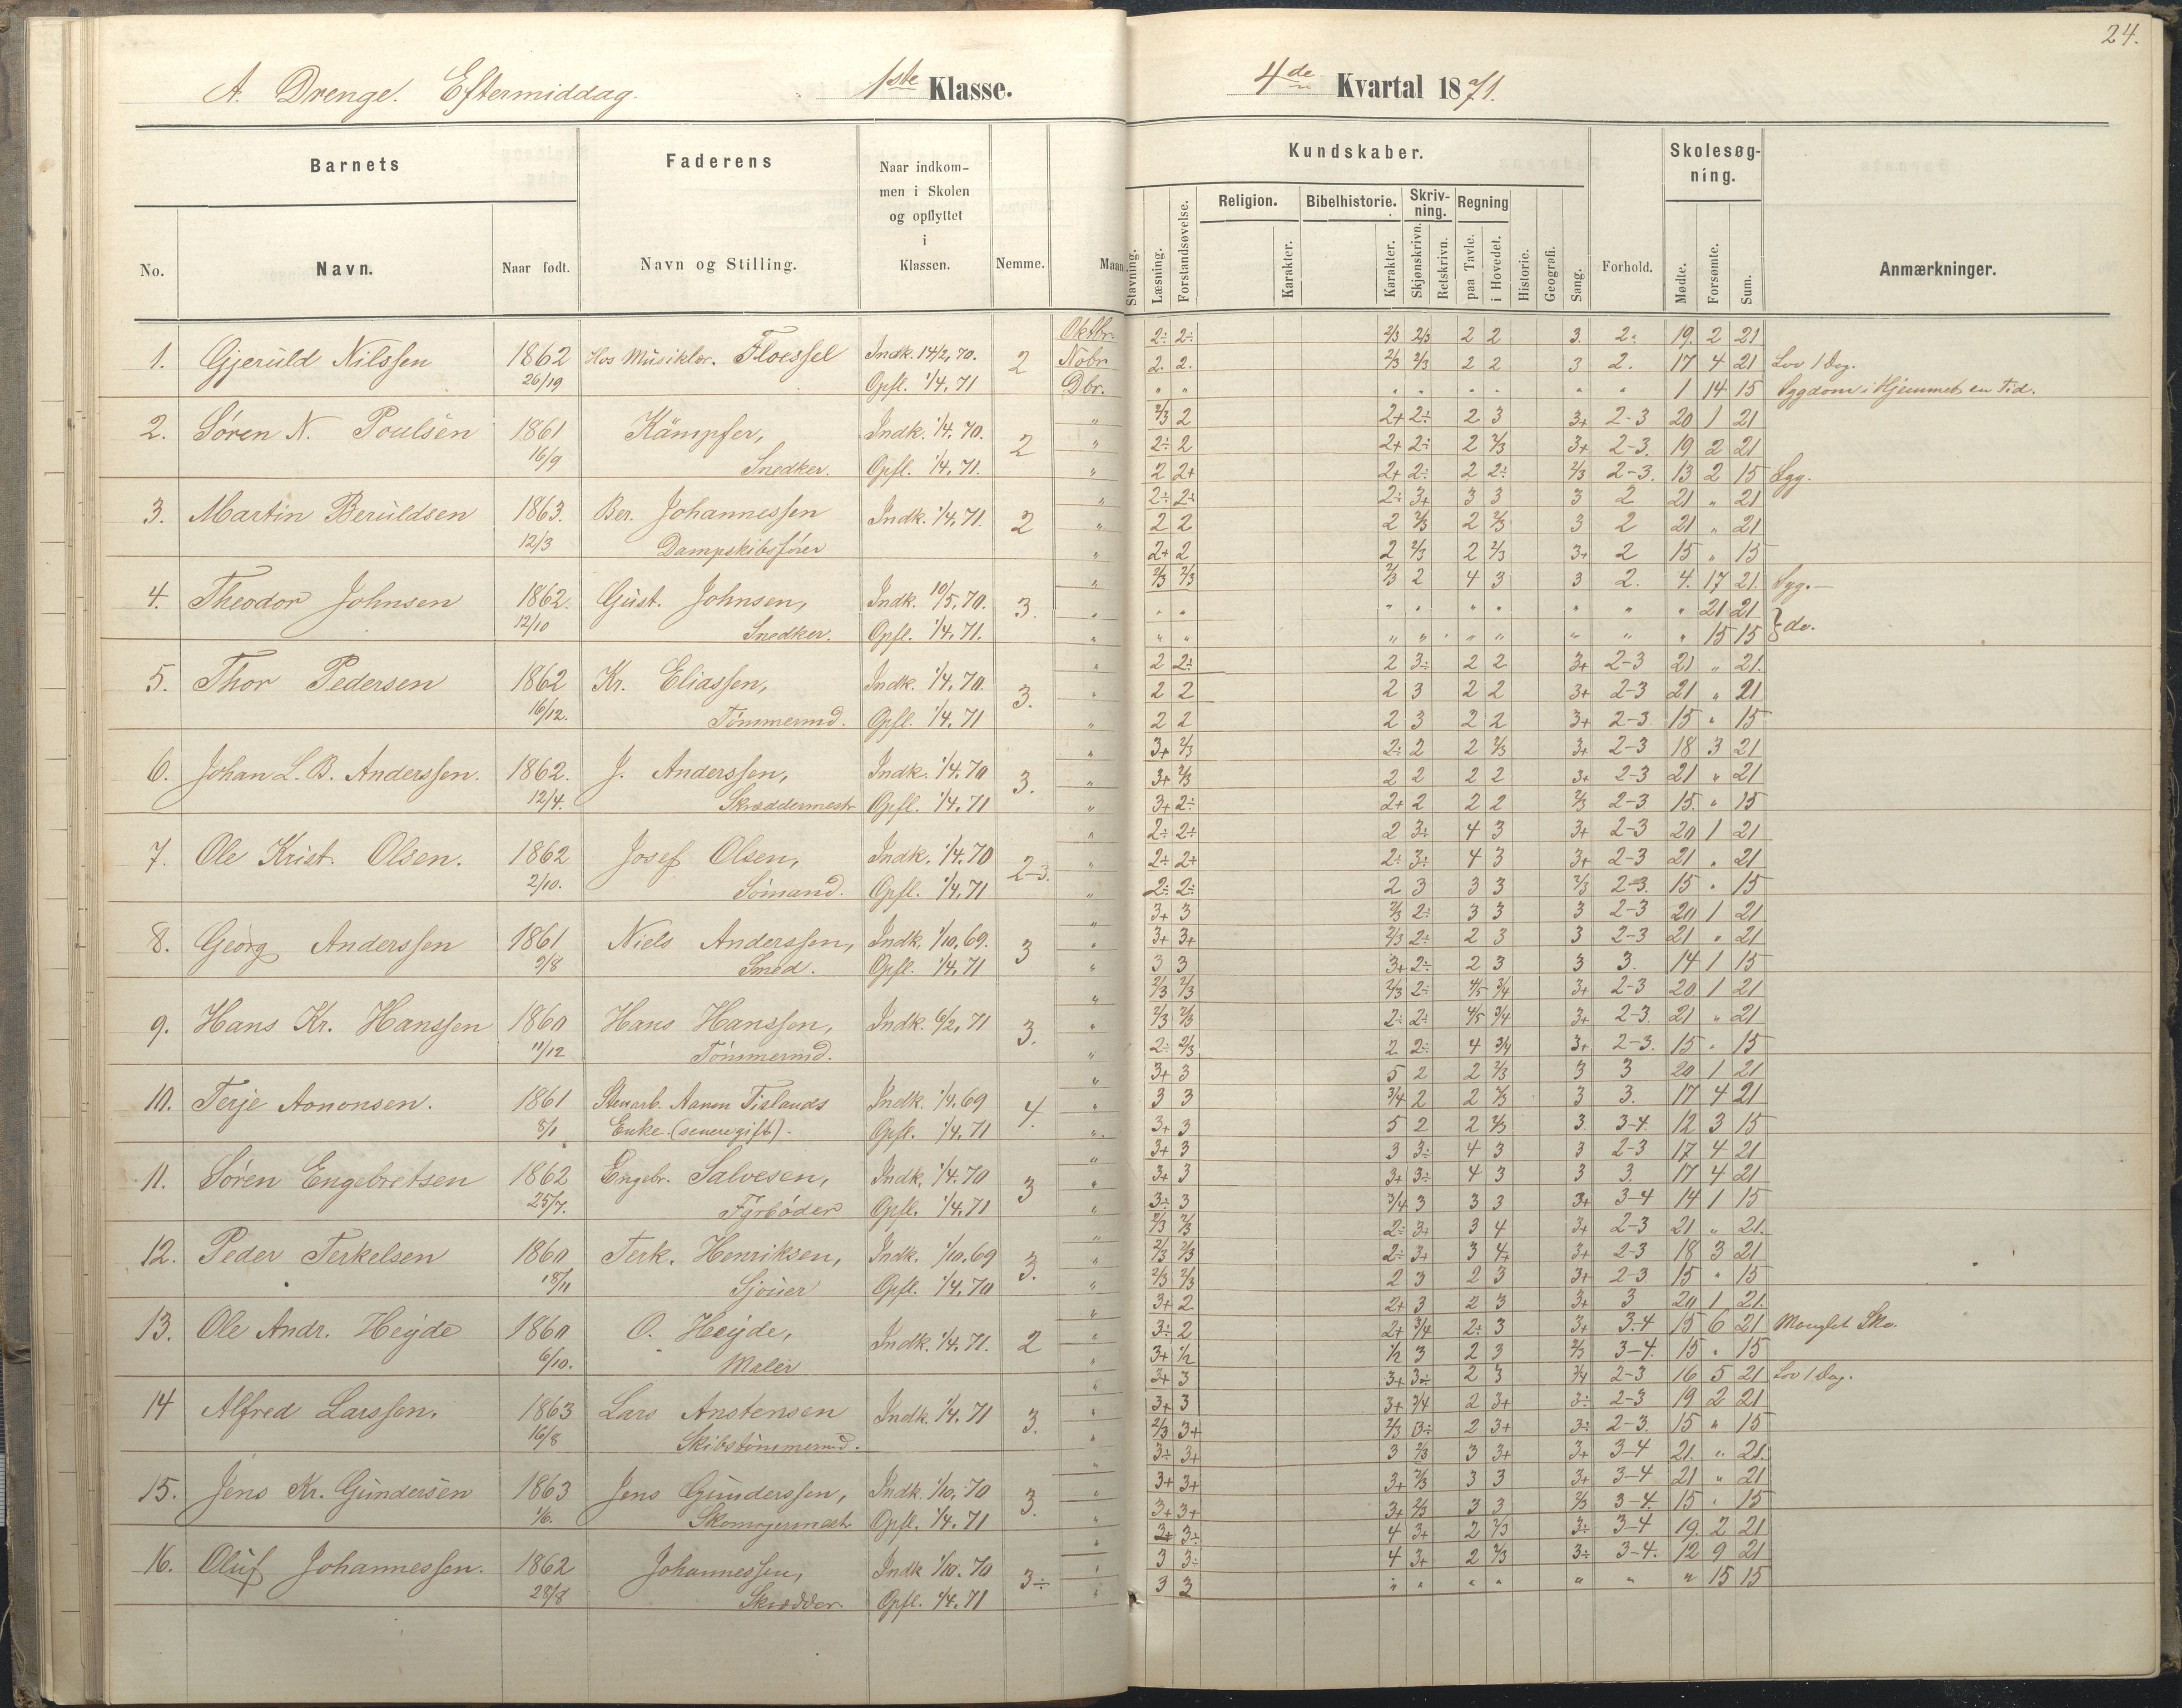 24.
A. Drenge. Eftermiddag. 1ste Klasse. 4de Kvartal 1871.
Barnets Faderens Naar indkommen i Skolen og opflyttet i Klassen. Nemme. Kundskaber. Forhold. Skolesøgning. Anmærkninger.
No. Navn. Naar født. Navn og Stilling. Maan Stavning. Læsning. Forstandsøvelse. Religion. Karakter. Bibelhistorie. Karakter. Skrivning. Skjønskrivn. Retskrivn. Regning paa Tavle. i Hovedet. Historie. Geografi. Sang. Mødte. Forsømte. Sum.
Oktbr. 2÷ 2÷ 2/3 2/3 2 2 3. 2. 19. 2 21
1. Gjeruld Nilssen 1862 Hos Musiklær. Floessel Indk. 14/2, 70. 2 Nobr 2. 2. 2/3 2/3 2 2 3 2. 17 4 21 Lov 1 Dag.
26/19 Opfl. 1/4. 71 Dbr. " " " " " " " " 1 14 15 Sygdom i Hjemmet en Tid.
" 2/3 2 2+ 2÷ 2 3 3+ 2-3 20 1 21
2. Søren N. Poulsen 1861 Kämpfer, Indk. 1/4. 70. 2 " 2÷ 2 2+ 2÷ 2 2/3 3+ 2-3. 19 2 21
16/9 Snedker. Opfl. 1/4. 71. " 2 2+ 2+ 2÷ 2 2÷ 2/3 2-3. 13 2 15 Syg.
" 2÷ 2÷ 2÷ 3+ 3 3 3 2 21 " 21
3. Martin Beruldsen 1863. Ber. Johannessen Indk. 1/4, 71. 2 " 2 2 2 2/3 2 2/3 3 2 21 " 21
12/3 Dampskibsfører " 2+ 2 2 2/3 2 2/3 3+ 2 15 " 15
" 2/3 2/3 2/3 2 4 3 3 2. 4. 17 21. Syg.—
4. Theodor Johnsen 1862. Gust. Johnsen, Indk. 10/5, 70. 3. " " " " " " " " " " 21 21 } do.
12/10 Snedker. Opfl. 1/4. 71. " " " " " " " " " " 15 15
" 2 2÷ 2 3÷ 2 2 3+ 2-3 21 " 21.
5. Thor Pedersen 1862 Kr. Eliassen, Indk. 1/4, 70. 3. " 2 2 2 3 2 2 3+ 2-3 21 " 21
16/12. Tømmermd. Opfl. 1/4. 71 " 2 2 2 3 2 2 3+ 2-3 15 " 15
" 3+ 2/3 2÷ 2 2 2/3 3+ 2-3 18 3 21
6. Johan L. B. Anderssen. 1862. J. Anderssen, Indk. 1/4. 70 3. " 3+ 2/3 2 2 2 2 3+ 2-3 21 " 21
12/4. Skræddermestr Opfl. 1/4. 71 " 3+ 2÷ 2+ 2 2 2 2/3 2-3 15. " 15
" 2÷ 2÷ 2 3÷ 4 3 3+ 2-3 20 1 21
7. Ole Krist. Olsen. 1862 Josef Olsen, Indk. 1/4. 70 2-3. " 2÷ 2+ 2÷ 3÷ 4 3 3+ 2-3 21 " 21
2/10. Sømand. Opfl. 1/4, 71 " 2÷ 2÷ 2 3 3 3 2/3 2-3. 15 " 15
" 3+ 3 2/3 2÷ 3 3 3 2-3 20 1 21
8. Georg Anderssen 1861 Niels Anderssen, Indk. 1/10, 69. 3 " 3+ 3+ 2/3 2÷ 2 3 3 2-3 21 " 21
9/8 Smed. Opfl. 1/4, 71 " 3 3 3+ 2÷ 2 3 3 3. 14 1 15
" 2/3 2/3 2/3 2÷ 4/5 3/4 3+ 2-3 20 1 21
9. Hans Kr. Hanssen 1860 Hans Hanssen, Indk. 6/2, 71 3. " 2/3 2/3 2÷ 2÷ 4/5 3/4 3+ 2-3. 21 " 21
11/12 Tømmermd. " 2÷ 2/3 2 2÷ 4 3/4 3+ 2-3. 15 " 15
" 3+ 3 5 2 2 2/3 3 3 20 1 21
10. Terje Aononsen. 1861 Stenarb. Aanon Fislands Indk. 1/4. 69 4. " 3 3 3/4 2 2 2/3 3 3. 17 4 21
8/1 Enke. (senere gift). Opfl. 1/4. 71 " 3+ 3 5 2 2 2/3 3. 3-4 12 3 15
" 3+ 3 3 3÷ 4 3 3 2-3 17 4 21
11. Søren Engebretsen 1862 Engebr. Salvesen, Indk. 1/4. 70 3 " 3+ 3 3+ 3÷ 4 3 3 3. 17 4 21
25/7. Fyrbøder Opfl. 1/4. 71 " 3÷ 3 3/4 3 3 3 3+ 3-4 14 1 15
" 2/3 2/3 2÷ 3+ 3 4 3+ 2-3 21 " 21.
12. Peder Terkelsen 1860 Terk. Henriksen, Indk. 1/10. 69 3. " 2/3 2/3 2÷ 3+ 3 4+ 3+ 2-3 18 3 21
18/11 Sjouer Opfl. 1/4. 70 " 2/3 2/3 2 3 2 3 3+ 2-3 15 " 15
" 3+ 2 2+ 3 2 3 3+ 3 20 1 21.
13. Ole Andr. Heyde 1860 O. Heyde, Indk. 1/4. 71. 2 " 3÷ 2 2+ 3/4 2÷ 3 3+ 3.4 15 6 21 Manglet Sko.
6/10. Maler " 3+ 1/2 1/2 3 2 3 2/3 3-4. 15 " 15
" 3+ 3 3+ 3÷ 2 3 3/4 2-3 16 5 21 Lov 1 Dag.
14 Alfred Larssen. 1863 Lars Anstensen Indk. 1/4. 71 3. " 3+ 3 3+ 3/4 2 3+ 3÷ 2-3 19 2 21
16/8 Skibstømmermd. " 2/3 3+ 2/3 3÷ 2 3+ 3÷ 2-3. 15 " 15
" 3÷ 3+ 3 2/3 3 3+ 3+ 3-4 21. " 21.
15. Jens Kr. Gundersen 1863 Jens Gunderssen, Indk. 1/10, 70 3. " 3+ 3+ 3+ 2/3 3 3 3+ 3-4 21 " 21
1/6. Skomagermest. Opfl. 1/4. 71 " 3+ 3+ 3+ 2/3 3 3 2/3 3-4. 15 " 15
" 3+ 3÷ 4 3+ 2 2/3 3÷ 3-4 19. 2 21
16. Oluf Johannessen. 1862 Johannessen, Indk 1/10. 70 3÷ " 3 3÷ 4 3+ 2 2/3 3÷ 3-4. 12 9 21
28/8 Skrædder. Opfl. 1/4. 71 " 3 3 " " " " " " " 15 15